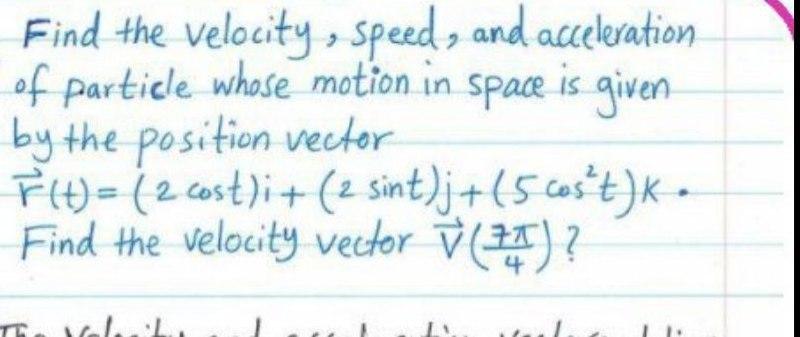 Find the velocity, speed, and acceleration
of particle whose motion in space is given
by the position vector
r⃗(t) = (2 cost)i + (2 sint)j + (5 cos²t)k.
Find the velocity vector V⃗(7π/4)?
The velocity and